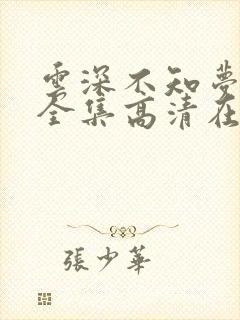 雲深不知夢
全集高清在
張少華